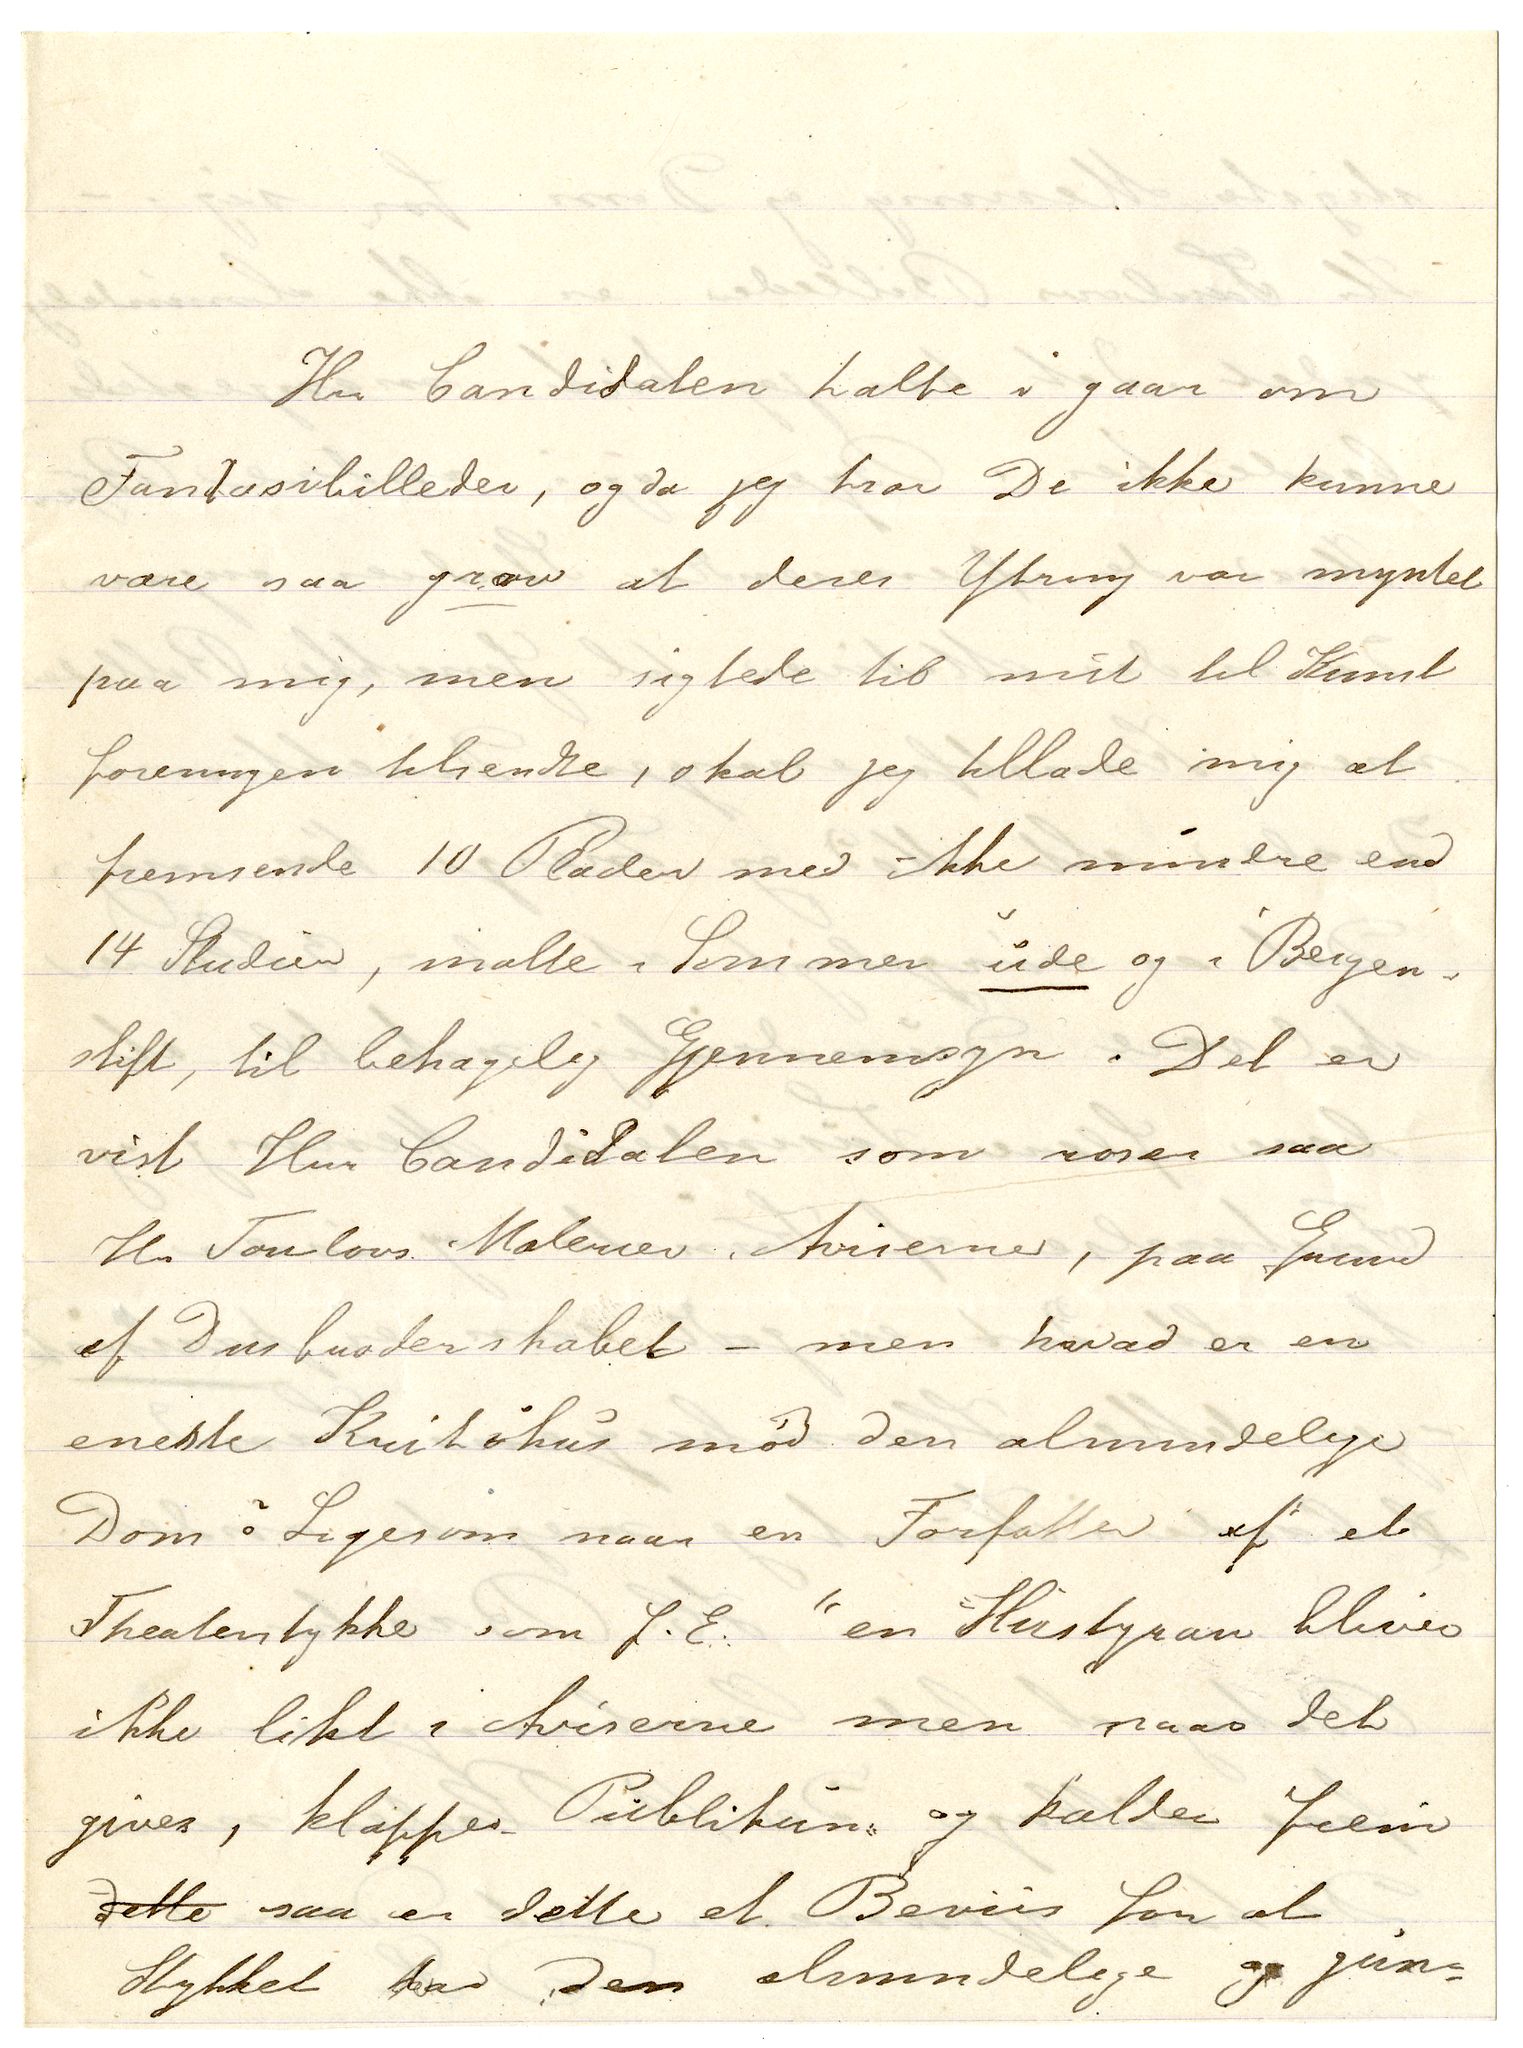 Hr Candidaten talte i gaar om
Fantasibilleder, og da jeg tror De ikke kunne
være saa grov at deres Ytring var myntet
paa mig, men sigtede til mit til Kunst
foreningen tilsendte, skal jeg tillade mig at
fremsende 10 Plader med ikke mindre end
14 Studier, malte i Sommer ude og i Bergen-
stift, til behagelig Gjennemsyn. Det er
vist Herr Candidaten som roser saa
Hr Toulovs Malerier i Aviserne, paa Grund
af Dusbroderskabet – men hvad er en
eneste Kritikus mod den almindelige
Dom? Ligesom naar en Forfatter af et
Theaterstykke som f. E. "en Hustyran" bliver
ikke likt i Aviserne men naar det
gives, klapper Publikum og kalder frem
dette saa er dette et Beviis for at
Stykket har den almindelige og gun-